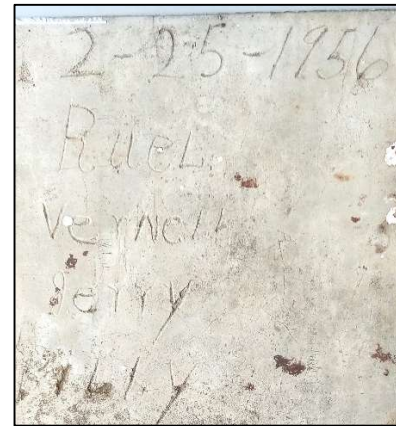 2-25-1956
RueL
VerNell
Jerry